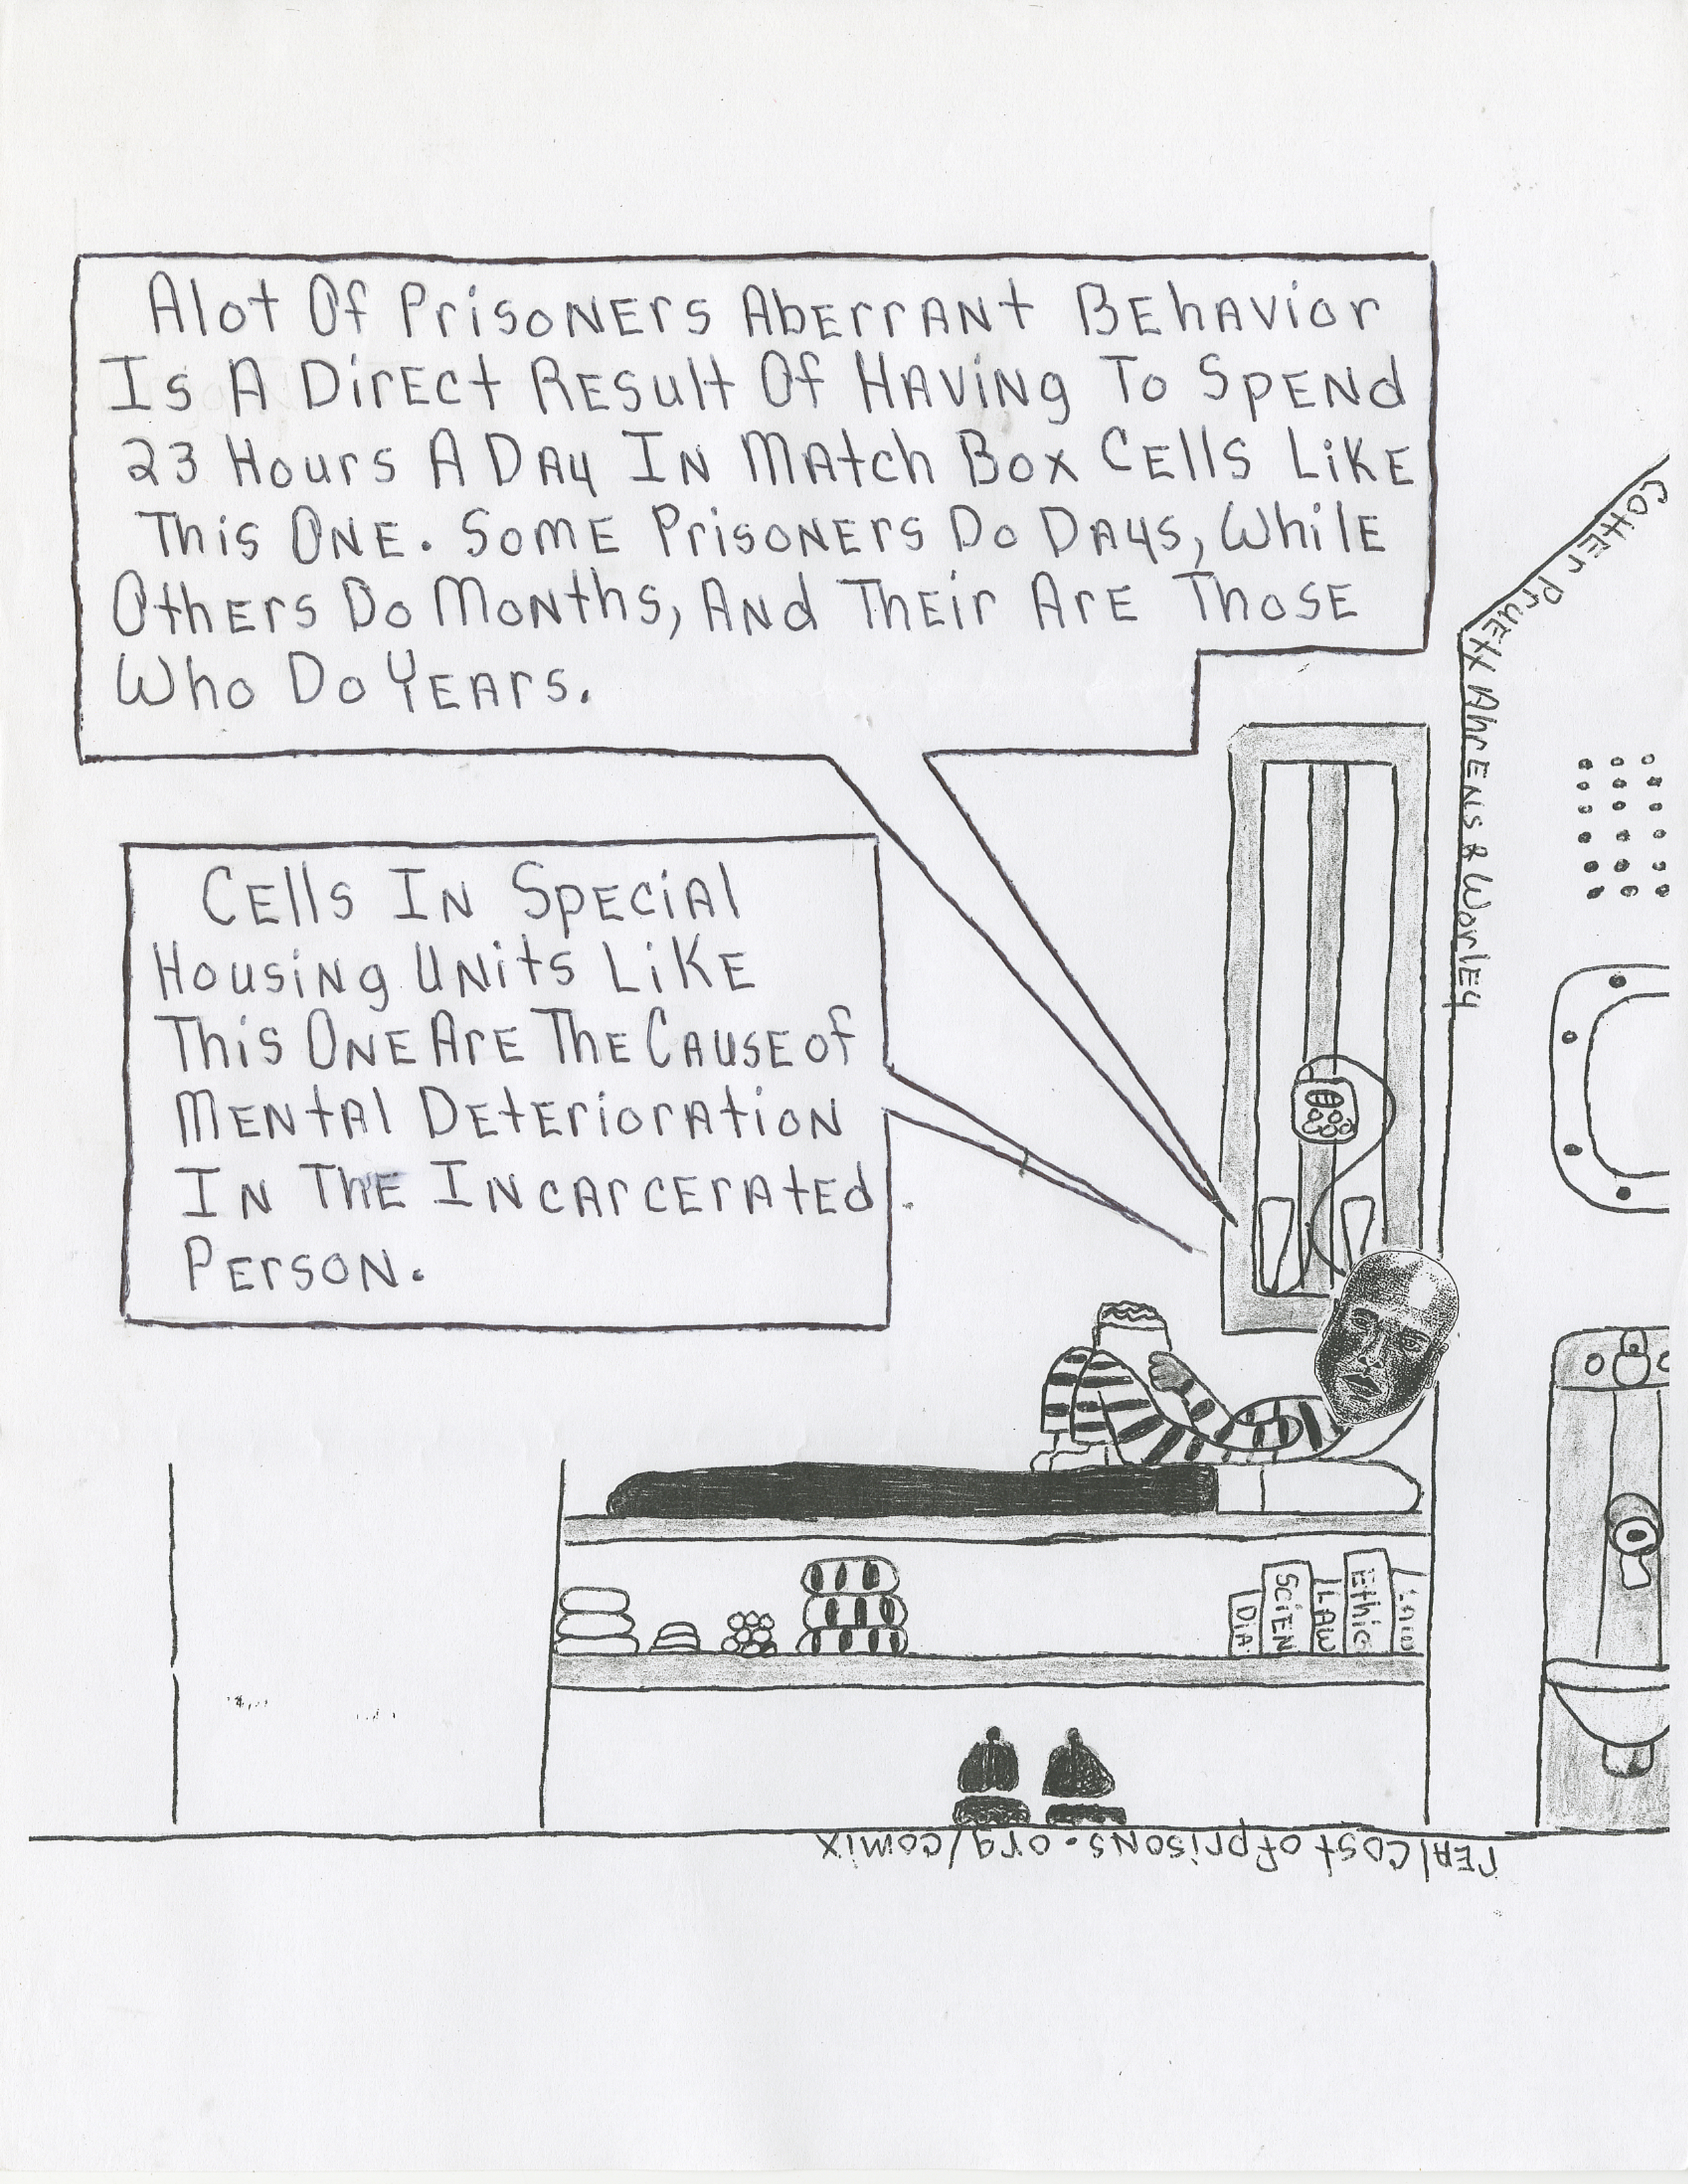 Alot Of Prisoners Aberrant Behavior
Is A Direct Result Of Having To Spend
23 Hours A Day In Match Box Cells Like
This One. Some Prisoners Do Days, While
Others Do Months, And Their Are Those
Who Do Years.
Cells In Special
Housing Units Like
This One Are The Cause of
Mental Deterioration
In The Incarcerated
Person.
Cotter Pruexx Ahrens & Worley
Dia
Scien
LAW
Ethic
Law
realcostofprisons.org/comix